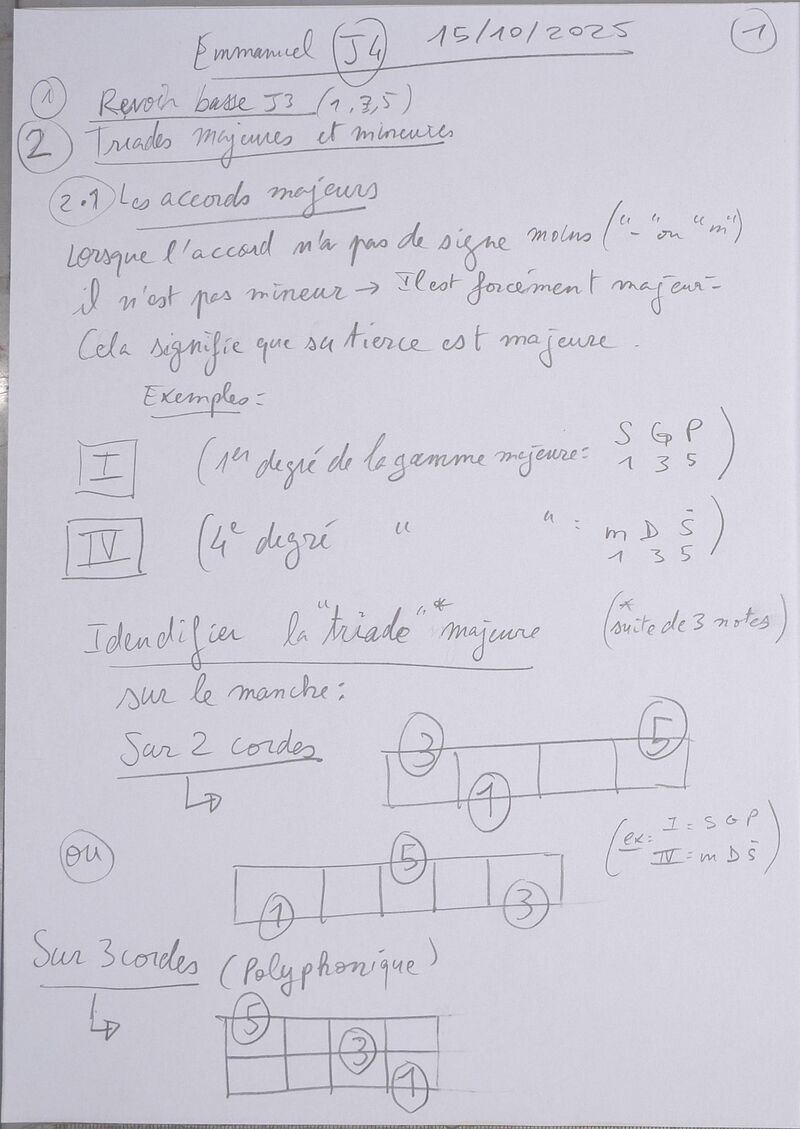 Emmanuel J4 15/10/2025 1
1 Revoir basse J3 (1,3,5)
2 Triades majeures et mineures
2.1 Les accords majeurs
Lorsque l'accord n'a pas de signe moins ("-" ou "m")
il n'est pas mineur → Il est forcément majeur-
Cela signifie que sa tierce est majeure.
Exemples:
I (1er degré de la gamme majeure: S G P
1 3 5)
IV (4e degré " " : m D S̄
1 3 5)
Idendifier la "triade"* majeure (* suite de 3 notes)
sur le manche:
Sur 2 cordes
3 5
1
ou
(ex: I = S G P
IV = m D S̄)
5
1 3
Sur 3 cordes (Polyphonique)
5
3
1